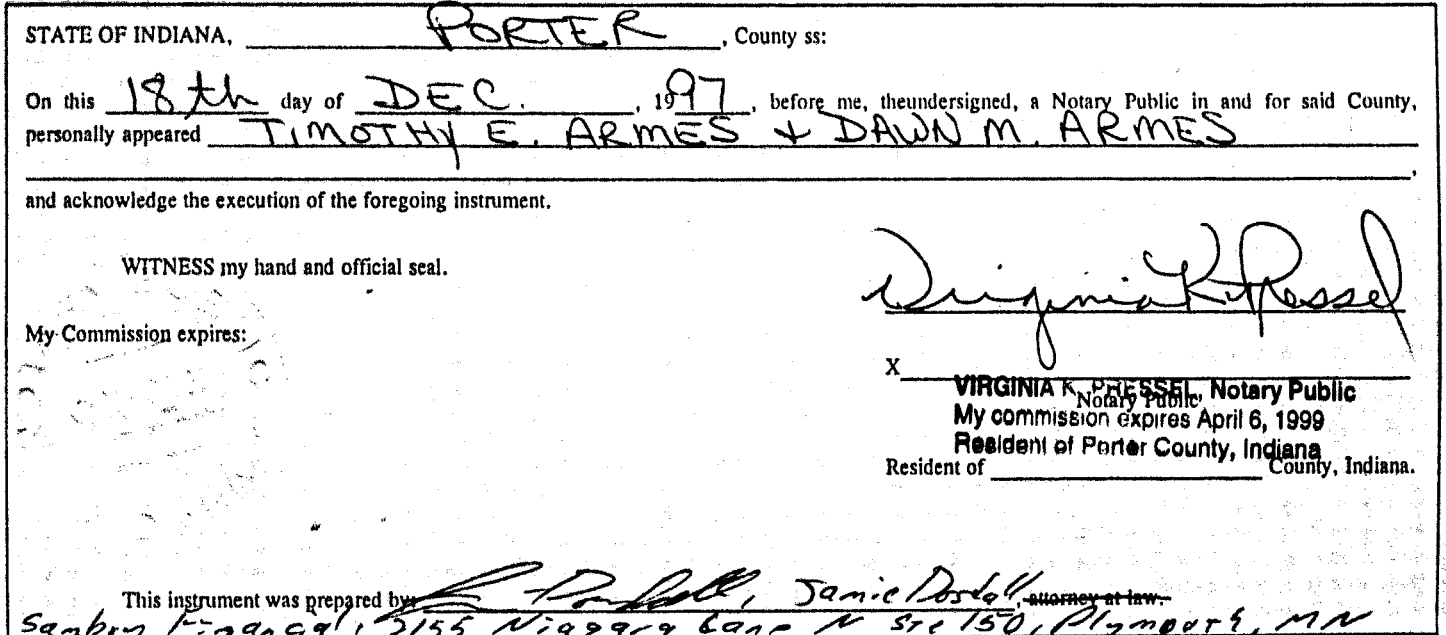 STATE OF INDIANA, PORTER, County ss:
On this 18th day of DEC., 1997, before me, theundersigned, a Notary Public in and for said County,
personally appeared TIMOTHY E. ARMES + DAWN M. ARMES
,
and acknowledge the execution of the foregoing instrument.
WITNESS my hand and official seal.
Virginia K. Pressel
My Commission expires:
X
VIRGINIA K. PRESSEL, Notary Public
Notary Public
My commission expires April 6, 1999
Resident of Porter County, Indiana
Resident of County, Indiana.
This instrument was prepared by: Jamie, attorney at law.
Financial, 2155 Niagara Lane N Ste 150, Plymouth, MN